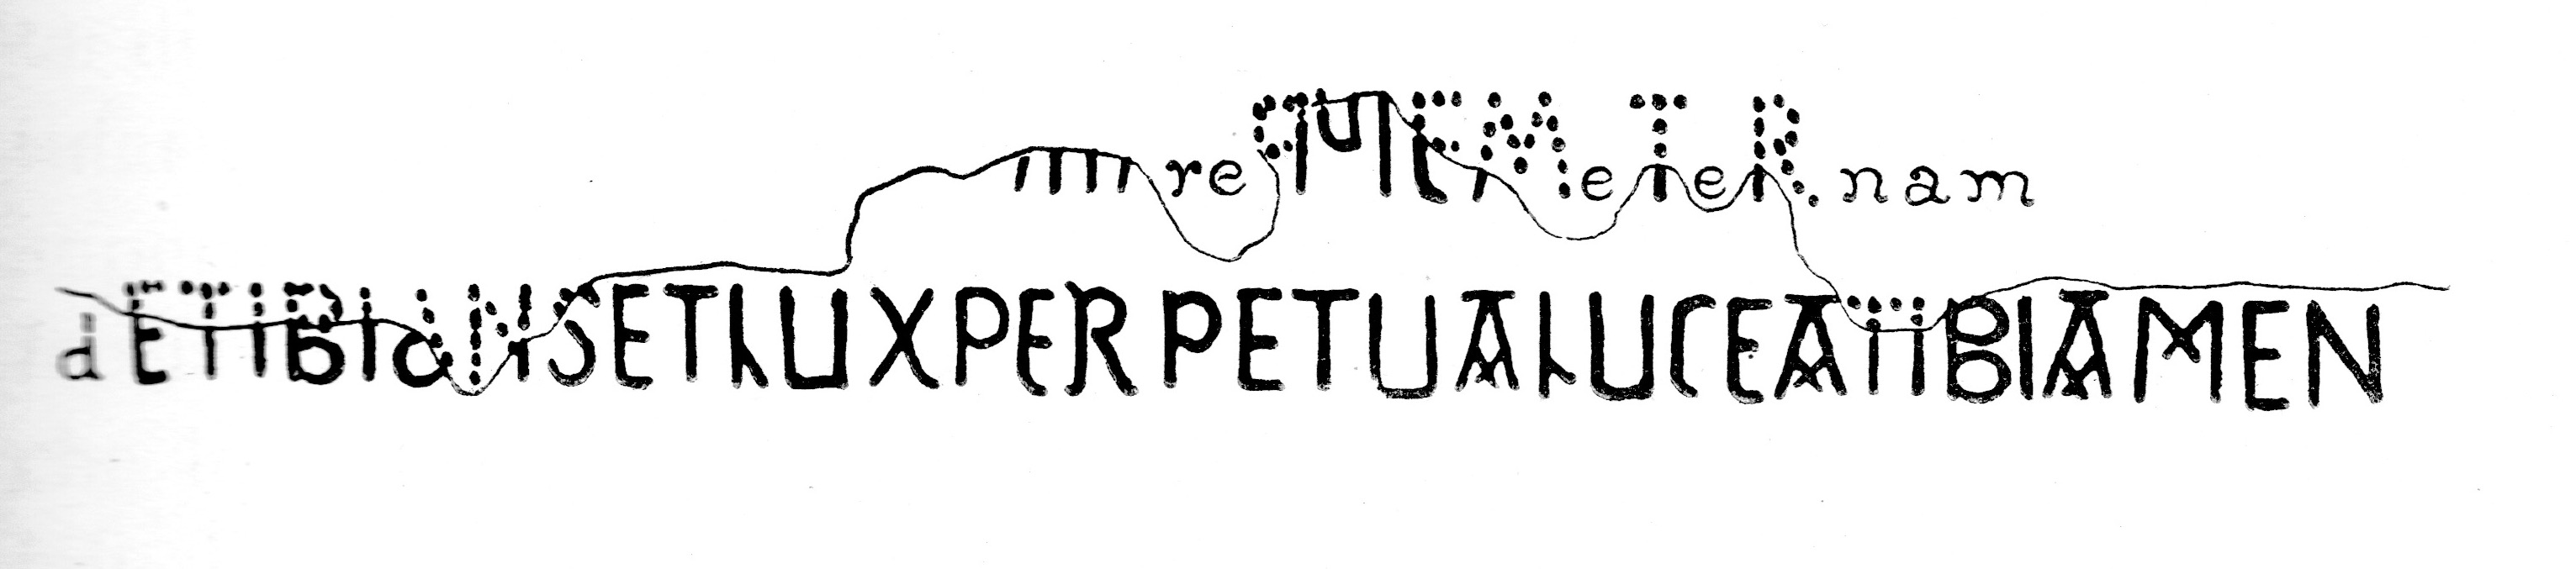 reQUIEMeTeRnam
dETIBIdNSETLUXPERPETUALUCEATIBIAMEN